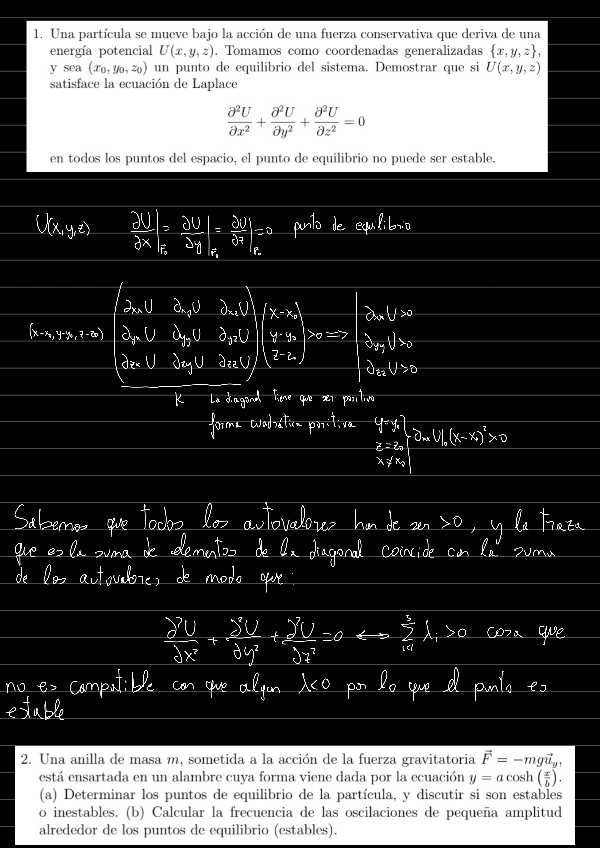 1. Una partícula se mueve bajo la acción de una fuerza conservativa que deriva de una
energía potencial U(x, y, z). Tomamos como coordenadas generalizadas {x, y, z},
y sea (x₀, y₀, z₀) un punto de equilibrio del sistema. Demostrar que si U(x, y, z)
satisface la ecuación de Laplace
∂²U/∂x² + ∂²U/∂y² + ∂²U/∂z² = 0
en todos los puntos del espacio, el punto de equilibrio no puede ser estable.
U(x,y,z) ∂U/∂x|r⃗₀ = ∂U/∂y|r⃗₀ = ∂U/∂z|r⃗₀ = 0 punto de equilibrio
(x-x₀, y-y₀, z-z₀) (∂xxU ∂xyU ∂xzU) (x-x₀) >0 ⟹ | ∂xxU>0
(∂yxU ∂yyU ∂yzU) (y-y₀) | ∂yyU>0
(∂zxU ∂zyU ∂zzU) (z-z₀) | ∂zzU>0
K La diagonal tiene que ser positiva
forma cuadrática positiva y=y₀ z=z₀ x≠x₀ } ∂xxU|₀(x-x₀)²>0
Sabemos que todos los autovalores han de ser >0, y la traza
que es la suma de elementos de la diagonal coincide con la suma
de los autovalores, de modo que:
∂²U/∂x² + ∂²U/∂y² + ∂²U/∂z² = 0 ⟷ ∑³ᵢ₌₁ λᵢ >0 cosa que
no es compatible con que algun λ<0 por lo que el punto es
estable
2. Una anilla de masa m, sometida a la acción de la fuerza gravitatoria F⃗ = −mgu⃗y,
está ensartada en un alambre cuya forma viene dada por la ecuación y = a cosh (x/b).
(a) Determinar los puntos de equilibrio de la partícula, y discutir si son estables
o inestables. (b) Calcular la frecuencia de las oscilaciones de pequeña amplitud
alrededor de los puntos de equilibrio (estables).